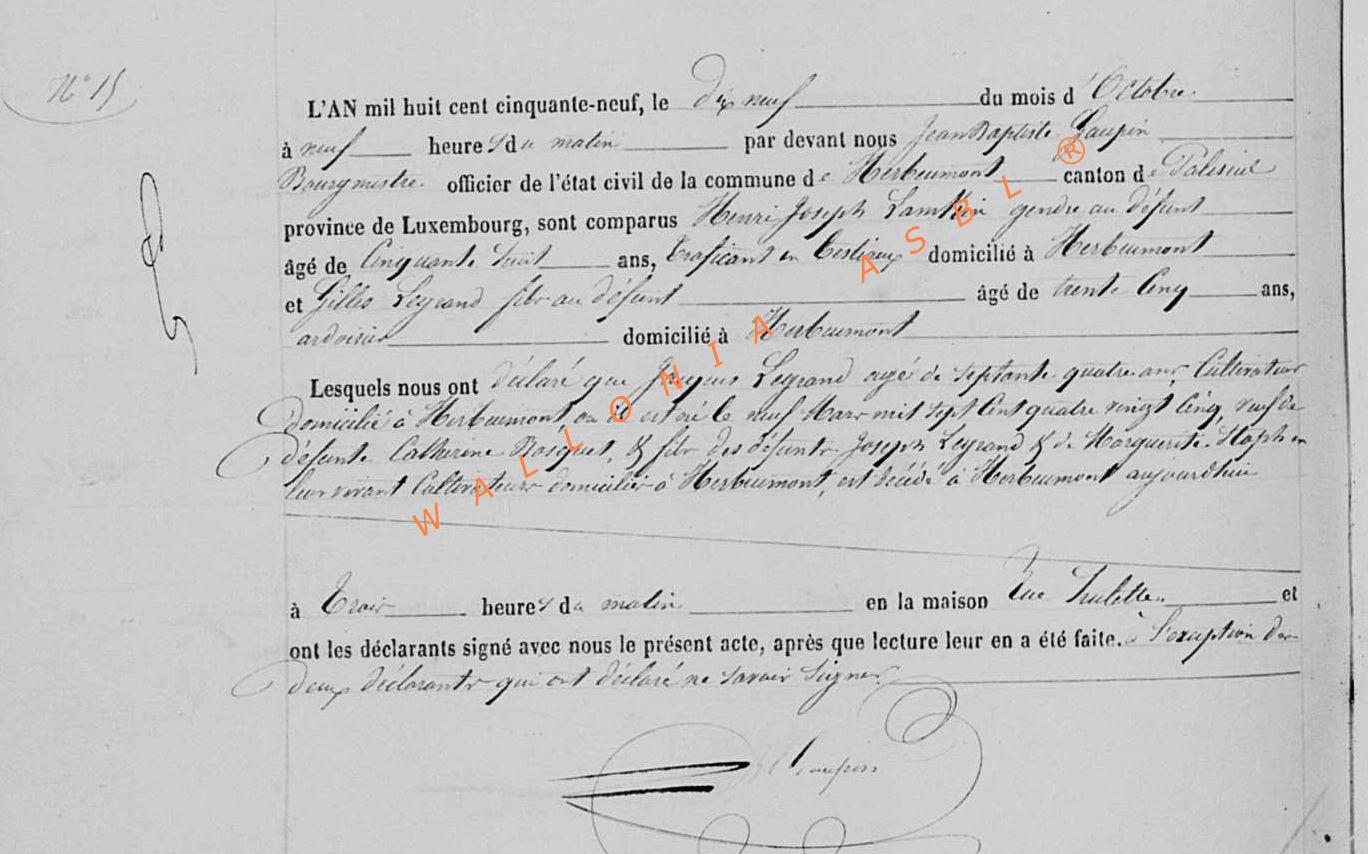 N° 15
L'AN mil huit cent cinquante-neuf, le dix neuf du mois d'Octobre
à neuf heures du matin par devant nous Jean Baptiste Gaupin
Bourgmestre officier de l'état civil de la commune de Herbeumont canton de Paliseul
province de Luxembourg, sont comparus Henri Joseph gendre au défunt
âgé de Cinquante huit ans, traficant en bestiaux domicilié à Herbeumont
et Gilles Legrand fils au défunt âgé de trente Cinq ans,
ardoisier domicilié à Herbeumont
Lesquels nous ont déclaré que Jacques Legrand agé de septante quatre ans, Cultivateur
domicilié à Herbeumont, ou il est né le neuf Mars mil sept Cent quatre vingt Cinq, veuf de
défunte Catherine & fils des défunts Joseph Legrand & de Marguerite en
leur vivant Cultivateurs domiciliés à Herbeumont, est décédé à Herbeumont aujourdhui
à trois heures du matin en la maison rue et
ont les déclarants signé avec nous le présent acte, après que lecture leur en a été faite. à l'exception des
deux déclarants qui ont déclaré ne savoir signer
WALLONIA ASBL ®